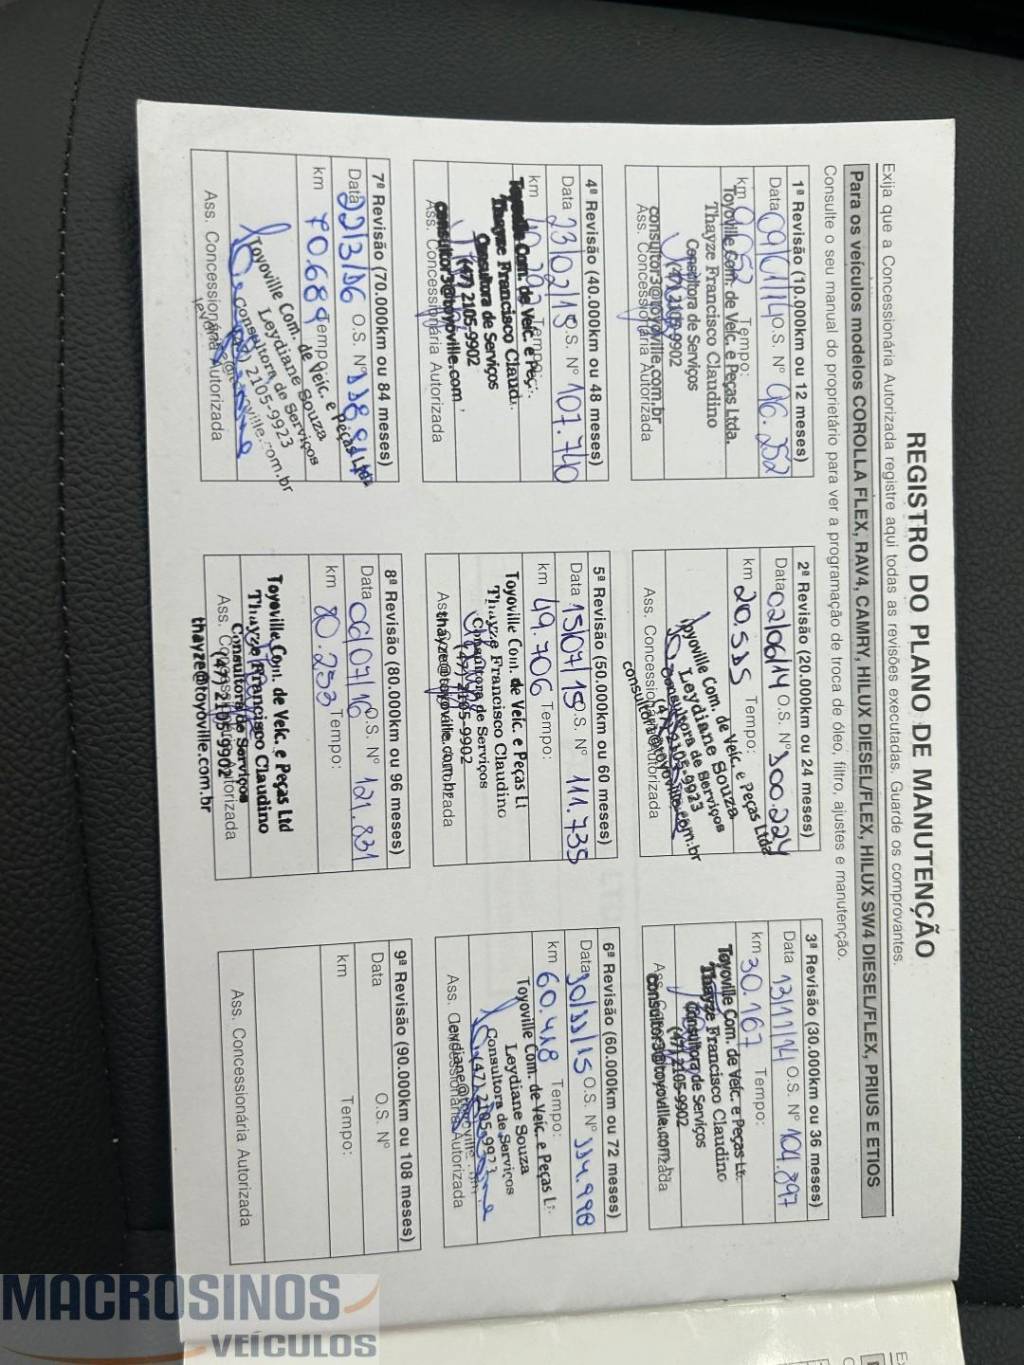 REGISTRO DO PLANO DE MANUTENÇÃO
Exija que a Concessionária Autorizada registre aqui todas as revisões executadas. Guarde os comprovantes.
Para os veículos modelos COROLLA FLEX, RAV4, CAMRY, HILUX DIESEL/FLEX, HILUX SW4 DIESEL/FLEX, PRIUS E ETIOS
Consulte o seu manual do proprietário para ver a programação de troca de óleo, filtro, ajustes e manutenção.
1ª Revisão (10.000km ou 12 meses)
Data 09/01/14 O.S. Nº 96.252
km Tempo:
Toyoville Com. de Veíc. e Peças Ltda.
Thayze Francisco Claudino
Consultora de Serviços
(47) 2105-9902
consultor3@toyoville.com.br
Ass. Concessionária Autorizada
2ª Revisão (20.000km ou 24 meses)
Data 02/06/14 O.S. Nº 100.224
km 20.515 Tempo:
Toyoville Com. de Veíc. e Peças Ltda
Leydiane Souza
Consultora de Serviços
(47) 2105-9923
consultor1@toyoville.com.br
Ass. Concessionária Autorizada
3ª Revisão (30.000km ou 36 meses)
Data 13/11/14 O.S. Nº 104.897
km 30.167 Tempo:
Toyoville Com. de Veíc. e Peças Lt.
Thayze Francisco Claudino
Consultora de Serviços
(47) 2105-9902
consultor3@toyoville.com.br
Ass.
4ª Revisão (40.000km ou 48 meses)
Data 23/02/15 O.S. Nº 107.740
km Tempo:
Toyoville Com. de Veíc. e Peç.
Thayze Francisco Claudi
Consultora de Serviços
(47) 2105-9902
consultor3@toyoville.com
Ass. Concessionária Autorizada
5ª Revisão (50.000km ou 60 meses)
Data 15/07/15 O.S. Nº 111.735
km 49.706 Tempo:
Toyoville Com. de Veíc. e Peças Lt
Thayze Francisco Claudino
Consultora de Serviços
(47) 2105-9902
thayze@toyoville.com.br
6ª Revisão (60.000km ou 72 meses)
Data 30/11/15 O.S. Nº 114.998
km 60.418 Tempo:
Toyoville Com. de Veíc. e Peças L
Leydiane Souza
Consultora de Serviços
(47) 2105-9923
Ass. Concessionária Autorizada
7ª Revisão (70.000km ou 84 meses)
Data 22/3/16 O.S. Nº
km 70.689 Tempo:
Toyoville Com. de Veíc. e Peças Ltda
Leydiane Souza
Consultora de Serviços
2105-9923
Ass. Concessionária Autorizada
8ª Revisão (80.000km ou 96 meses)
Data 06/07/16 O.S. Nº 121.831
km 80.253 Tempo:
Toyoville Com. de Veíc. e Peças Ltd
Thayze Francisco Claudino
Consultora de Serviços
(47) 2105-9902
thayze@toyoville.com.br
Ass. Concessionária Autorizada
9ª Revisão (90.000km ou 108 meses)
Data O.S. Nº
km Tempo:
Ass. Concessionária Autorizada
MACROSINOS
VEÍCULOS